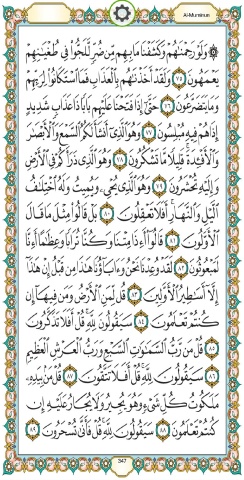 Al-Muminun
۞ وَلَوْ رَحِمْنَٰهُمْ وَكَشَفْنَا مَا بِهِم مِّن ضُرٍّ لَّلَجُّوا۟ فِى طُغْيَٰنِهِمْ
يَعْمَهُونَ ٧٥ وَلَقَدْ أَخَذْنَٰهُم بِٱلْعَذَابِ فَمَا ٱسْتَكَانُوا۟ لِرَبِّهِمْ
وَمَا يَتَضَرَّعُونَ ٧٦ حَتَّىٰٓ إِذَا فَتَحْنَا عَلَيْهِم بَابًا ذَا عَذَابٍ شَدِيدٍ
إِذَا هُمْ فِيهِ مُبْلِسُونَ ٧٧ وَهُوَ ٱلَّذِىٓ أَنشَأَ لَكُمُ ٱلسَّمْعَ وَٱلْأَبْصَٰرَ
وَٱلْأَفْـِٔدَةَ ۚ قَلِيلًا مَّا تَشْكُرُونَ ٧٨ وَهُوَ ٱلَّذِى ذَرَأَكُمْ فِى ٱلْأَرْضِ
وَإِلَيْهِ تُحْشَرُونَ ٧٩ وَهُوَ ٱلَّذِى يُحْىِۦ وَيُمِيتُ وَلَهُ ٱخْتِلَٰفُ
ٱلَّيْلِ وَٱلنَّهَارِ ۚ أَفَلَا تَعْقِلُونَ ٨٠ بَلْ قَالُوا۟ مِثْلَ مَا قَالَ
ٱلْأَوَّلُونَ ٨١ قَالُوٓا۟ أَءِذَا مِتْنَا وَكُنَّا تُرَابًا وَعِظَٰمًا أَءِنَّا
لَمَبْعُوثُونَ ٨٢ لَقَدْ وُعِدْنَا نَحْنُ وَءَابَآؤُنَا هَٰذَا مِن قَبْلُ إِنْ هَٰذَآ
إِلَّآ أَسَٰطِيرُ ٱلْأَوَّلِينَ ٨٣ قُل لِّمَنِ ٱلْأَرْضُ وَمَن فِيهَآ إِن
كُنتُمْ تَعْلَمُونَ ٨٤ سَيَقُولُونَ لِلَّهِ ۚ قُلْ أَفَلَا تَذَكَّرُونَ
٨٥ قُلْ مَن رَّبُّ ٱلسَّمَٰوَٰتِ ٱلسَّبْعِ وَرَبُّ ٱلْعَرْشِ ٱلْعَظِيمِ
٨٦ سَيَقُولُونَ لِلَّهِ ۚ قُلْ أَفَلَا تَتَّقُونَ ٨٧ قُلْ مَنۢ بِيَدِهِۦ
مَلَكُوتُ كُلِّ شَىْءٍ وَهُوَ يُجِيرُ وَلَا يُجَارُ عَلَيْهِ إِن
كُنتُمْ تَعْلَمُونَ ٨٨ سَيَقُولُونَ لِلَّهِ ۚ قُلْ فَأَنَّىٰ تُسْحَرُونَ ٨٩
347